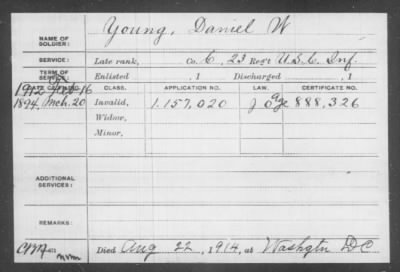 NAME OF SOLDIER: Young, Daniel W
SERVICE: Late rank, Co. C, 23 Reg't U.S.C. Inf.
TERM OF SERVICE: Enlisted , 1 Discharged , 1
DATE OF FILING. CLASS. APPLICATION NO. LAW. CERTIFICATE NO.
1912 Feb 16
1894, Mch. 20 Invalid, 1.157,020 age 888,326
Widow,
Minor,
ADDITIONAL SERVICES:
REMARKS:
Died Aug 22, 1914, at Washgtn D C